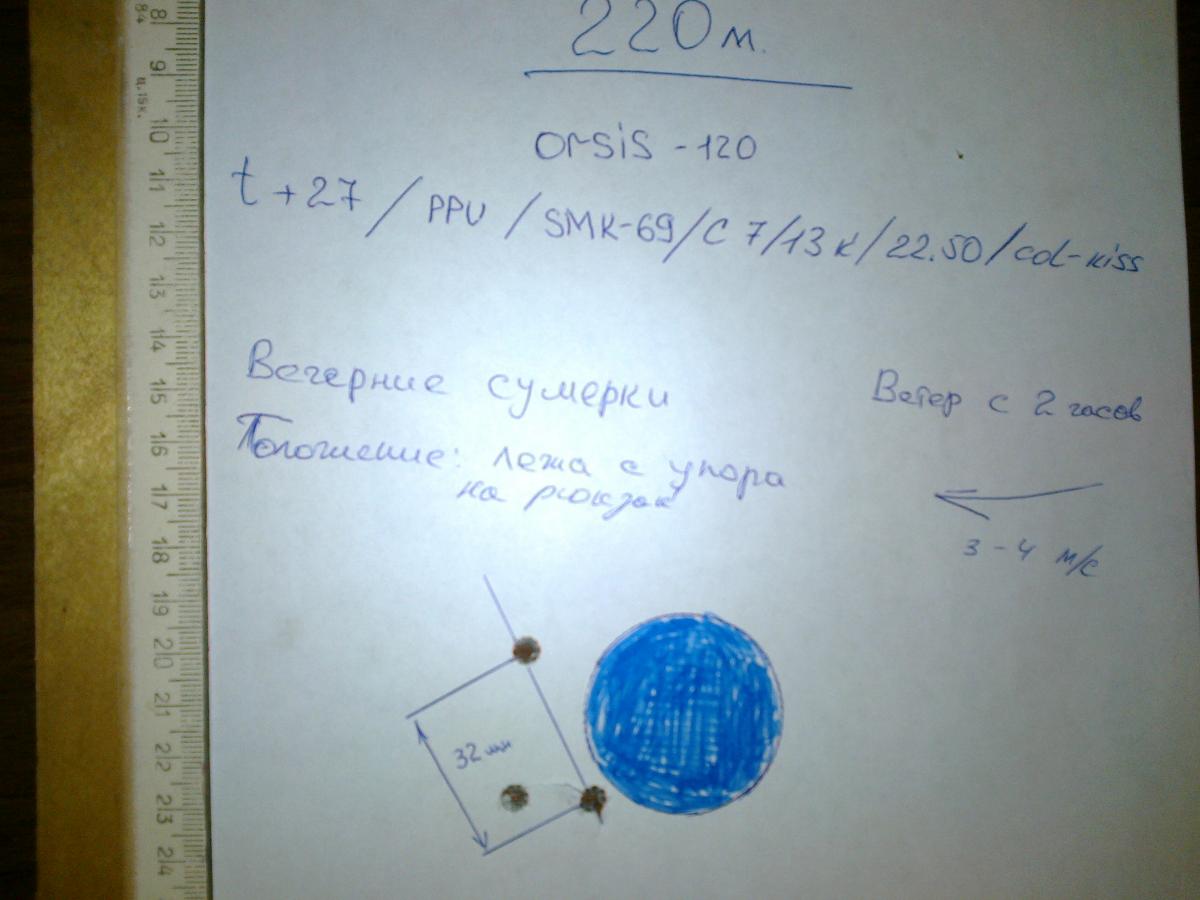 220 м.
orsis - 120
t +27 / PPU / SMK-69 / C 7 / 13 к / 22.50 / col-kiss
Вечерние сумерки
Ветер с 2 часов
Положение: лежа с упора
на рюкзак
3-4 м/с
32 мм
8 9 10 11 12 13 14 15 16 17 18 19 20 21 22 23 24
84
ц. 15к.